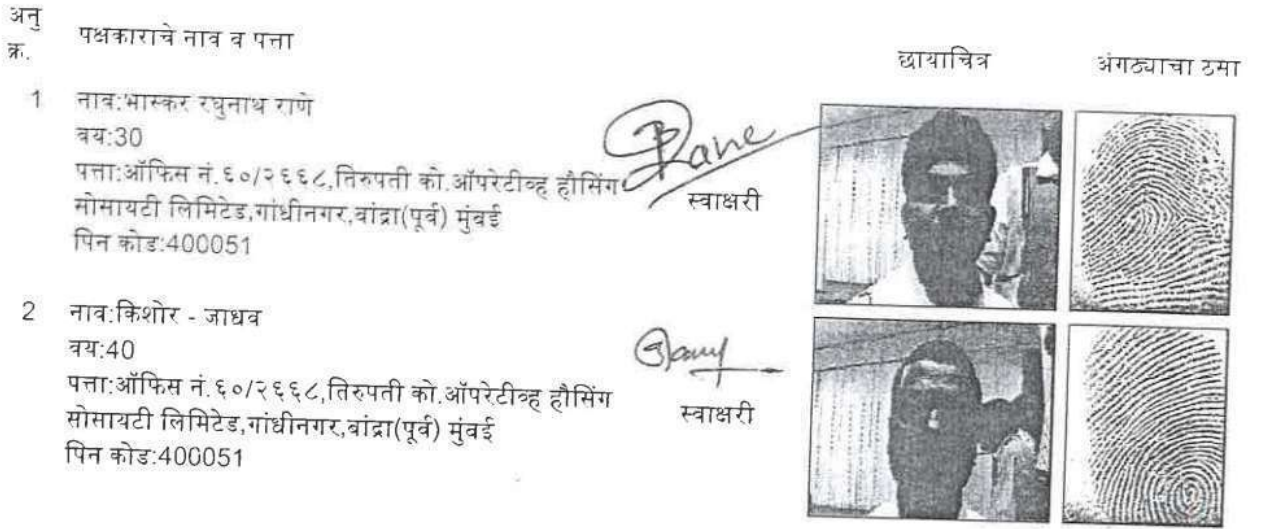 अनु क्र.
पक्षकाराचे नाव व पत्ता
छायाचित्र
अंगठ्याचा ठसा
1 नाव:भास्कर रघुनाथ राणे
वय:30
पत्ता:ऑफिस नं.६०/२६६८,तिरुपती को.ऑपरेटीव्ह हौसिंग
सोसायटी लिमिटेड,गांधीनगर,वांद्रा(पूर्व) मुंबई
पिन कोड:400051
Rane
स्वाक्षरी
2 नाव:किशोर - जाधव
वय:40
पत्ता:ऑफिस नं.६०/२६६८,तिरुपती को.ऑपरेटीव्ह हौसिंग
सोसायटी लिमिटेड,गांधीनगर,वांद्रा(पूर्व) मुंबई
पिन कोड:400051
स्वाक्षरी